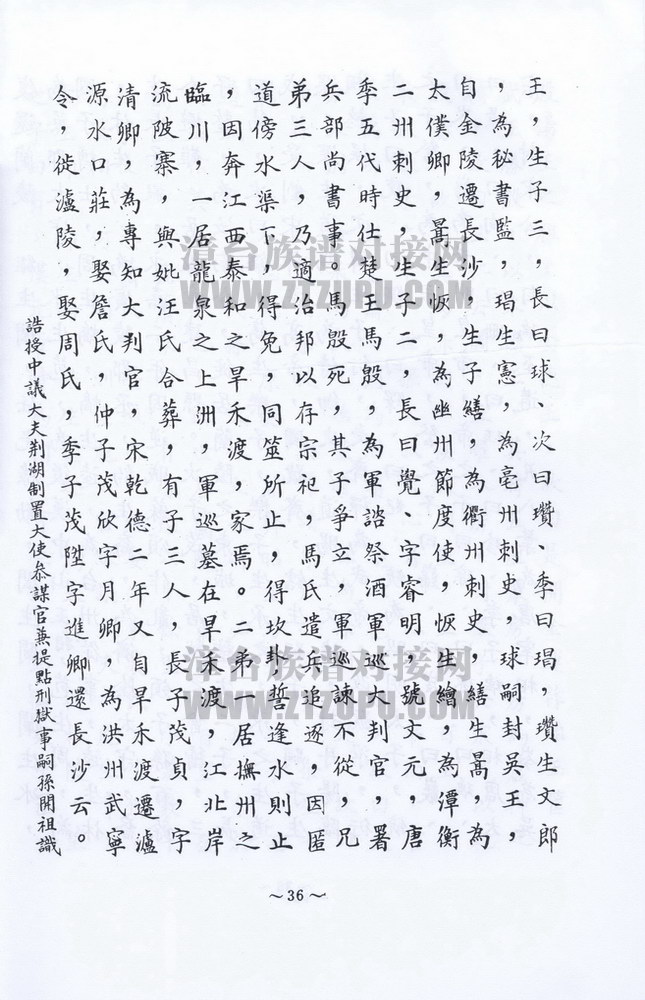 王，生子三，長曰球、次曰瓚、季曰瑒，瓚生文郎
，為秘書監，瑒生憲，為亳州刺史，球嗣封吳王，
自金陵遷長沙，生子繕，為衢州刺史，繕生暠，為
太僕卿，暠生恢，為幽州節度使，恢生繪，為潭衡
二州刺史，生子二，長曰覺、字睿明，號文元，唐
季五代時仕楚王馬殷，為軍諮祭酒軍巡大判官，署
兵部尚書事。馬殷死，其子爭立，軍巡諫不從，兄
弟三人，乃適治邦以存宗祀，馬氏遣兵追逐，因匿
道傍水渠下，得免，同筮所止，得坎卦，誓逢水則止
，因奔江西泰和之早禾渡，家焉。二弟一居撫州之
臨川，一居龍泉之上洲，軍巡墓在早禾渡，江北岸
流陂寨，與妣汪氏合葬，有子三人，長子茂貞，字
清卿，為專知大判官，宋乾德二年又自早禾渡遷瀘
源水口莊，娶詹氏，仲子茂欣字月卿，為洪州武寧
令，徙瀘陵，娶周氏，季子茂陞字進卿還長沙云。
誥授中議大夫荆湖制置大使叅謀官兼提點刑獄事嗣孫開祖識
～36～
漳台族谱对接网
WWW.ZTZUPU.COM
漳台族谱对接网
WWW.ZTZUPU.COM